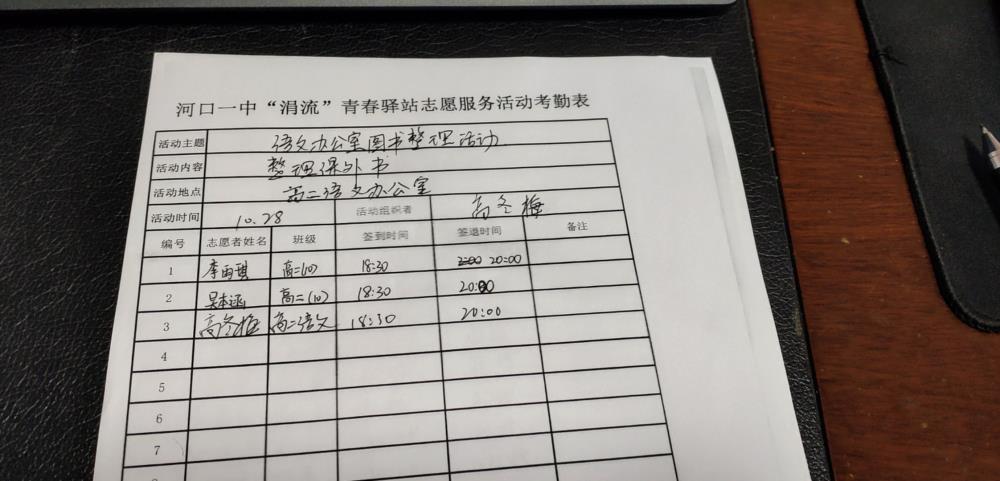 河口一中“涓流”青春驿站志愿服务活动考勤表
活动主题 语文办公室图书整理活动
活动内容 整理课外书
活动地点 高二语文办公室
活动时间 10.28 活动组织者 高冬梅
编号 志愿者姓名 班级 签到时间 签退时间 备注
1 李雨琪 高二(10) 18:30 20:00
2 高二(10) 18:30 20:00
3 高冬梅 高二语文 18:30 20:00
4
5
6
7